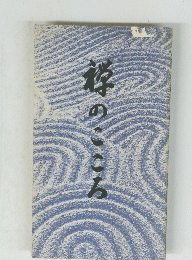 禅のこころ